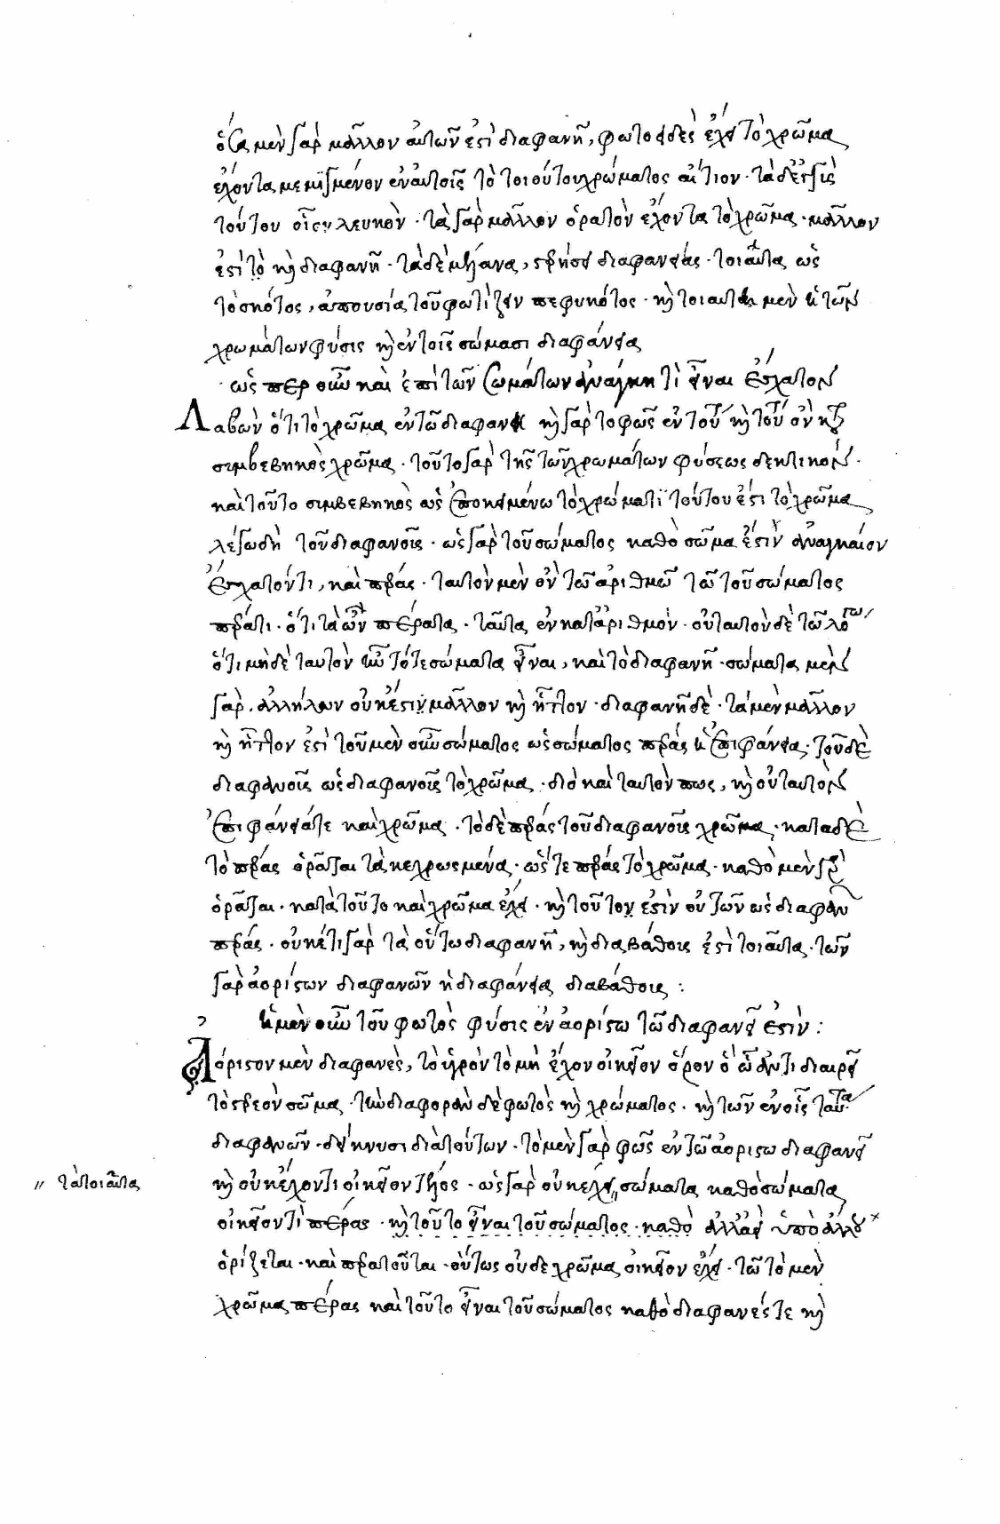 ὅσα μὲν γὰρ μᾶλλον αὐτῶν ἐστὶ διαφανῆ, φωτοειδὲς ἔχει τὸ χρῶμα
ἔχοντα μεμιγμένον ἐν αὑτοῖς τὸ τοιούτου χρώματος αἴτιον · τὰ δὲ ἐγγὺς
τούτου οἷς λευκὸν · τὰ γὰρ μᾶλλον ὁρατὸν ἔχοντα τὸ χρῶμα · μᾶλλον
ἐστὶ καὶ διαφανῆ · τὰ δὲ μέλανα, στρήσει διαφανείας · τοιαῦτα ὡς
τὸ σκότος, ἀπουσία τοῦ φωτίζειν πεφυκότος · καὶ τοιαύτη μὲν ἡ τῶν
χρωμάτων φύσις καὶ ἐν τοῖς σώμασι διαφάνεια
· ὥσπερ οὖν καὶ ἐπὶ τῶν σωμάτων ἀνάγκη τὶ εἶναι ἔσχατον
Λαβὼν ὅτι τὸ χρῶμα ἐν τῶ διαφανεῖ καὶ γὰρ τὸ φῶς ἐν τούτ καὶ τοῦτ ὂν κατὰ
συμβεβηκὸς χρῶμα · τοῦτο γὰρ τῆς τῶν χρωμάτων φύσεως δεκτικόν ·
καὶ τοῦτο συμβεβηκὸς ὡς ὑποκειμένω τὸ χρώματι τούτου ἐστὶ τὸ χρῶμα
λέγω δὴ τοῦ διαφανοῦς · ὡς γὰρ τοῦ σώματος καθὸ σῶμα ἐστὶν ἀναγκαίον
ἔσχατόν τι, καὶ πέρας · ταυτὸν μὲν ὂν τῶ ἀριθμῶ τῶ τοῦ σώματος
πέρατι · ὅτι τὰ ὧν πέρατα · ταῦτα ἓν κατ' ἀριθμόν · οὐ ταυτὸν δὲ τῶ λόγω
ὅτι μηδὲ ταυτὸν ἦν τό τε σώματα εἶναι, καὶ τὸ διαφανῆ · σώματα μὲν
γὰρ ἀλλήλων οὐκ ἔστιν μᾶλλον καὶ ἧττον · διαφανῆ δὲ · τὰ μὲν μᾶλλον
καὶ ἧττον ἐστὶ τοῦ μὲν οὖν σώματος ὡς σώματος πέρας ἡ ἐπιφάνεια · τοῦ δὲ
διαφανοῦς ὡς διαφανοῦς τὸ χρῶμα · διὸ καὶ ταυτόν πως, καὶ οὐ ταυτὸν
ἐπιφάνειά τε καὶ χρῶμα · τὸ δὲ πέρας τοῦ διαφανοῦς χρῶμα · κατὰ δὲ
τὸ πέρας ὁρᾶται τὰ κεχρωσμένα · ὥστε πέρας τὸ χρῶμα · καθὸ μὲν γὰρ
ὁρᾶται · κατὰ τοῦτο καὶ χρῶμα ἔχει · καὶ τοῦτον ἐστὶν οὐ τῶν ὡς διαφαν
πέρας · οὐκέτι γὰρ τὰ οὕτω διαφανῆ, καὶ διαβάθους ἐστὶ τοιαῦτα · τῶν
γὰρ ἀορίστων διαφανῶν ἡ διαφάνεια διαβάθους :
ἡ μὲν οὖν τοῦ φωτὸς φύσις ἐν ἀορίστω τῶ διαφανεῖ ἐστὶν :
Ἀόριστον μὲν διαφανὲς, τὸ ὑγρὸν τὸ μὴ ἔχον οἰκεῖον ὅρον ὃ ὧ ἀντιδιαιρεῖ
τὸ στερεὸν σῶμα · τὴν διαφορὰν δὲ φωτὸς καὶ χρώματος · καὶ τῶν ἐν οἷς ταῦτα
διαφανῶν · δείκνυσι διὰ τούτων · τὸ μὲν γὰρ φῶς ἐν τῶ ἀορίστω διαφανεῖ
καὶ οὐκ ἔχοντι οἰκεῖον τέλος · ὡς γὰρ οὐκ ἔχει σώματα καθὸ σώματα
// τὰ τοιαῦτα
οἰκεῖόν τι πέρας · καὶ τοῦτο εἶναι τοῦ σώματος · καθὸ ἀλλ' ἀεὶ ὑπὸ ἄλλου
ὁρίζεται · καὶ περατοῦται · οὕτως οὐδὲ χρῶμα οἰκεῖον ἔχει · τῶ τὸ μὲν
χρῶμα πέρας καὶ τοῦτο εἶναι τοῦ σώματος καθὸ διαφανές τε καὶ